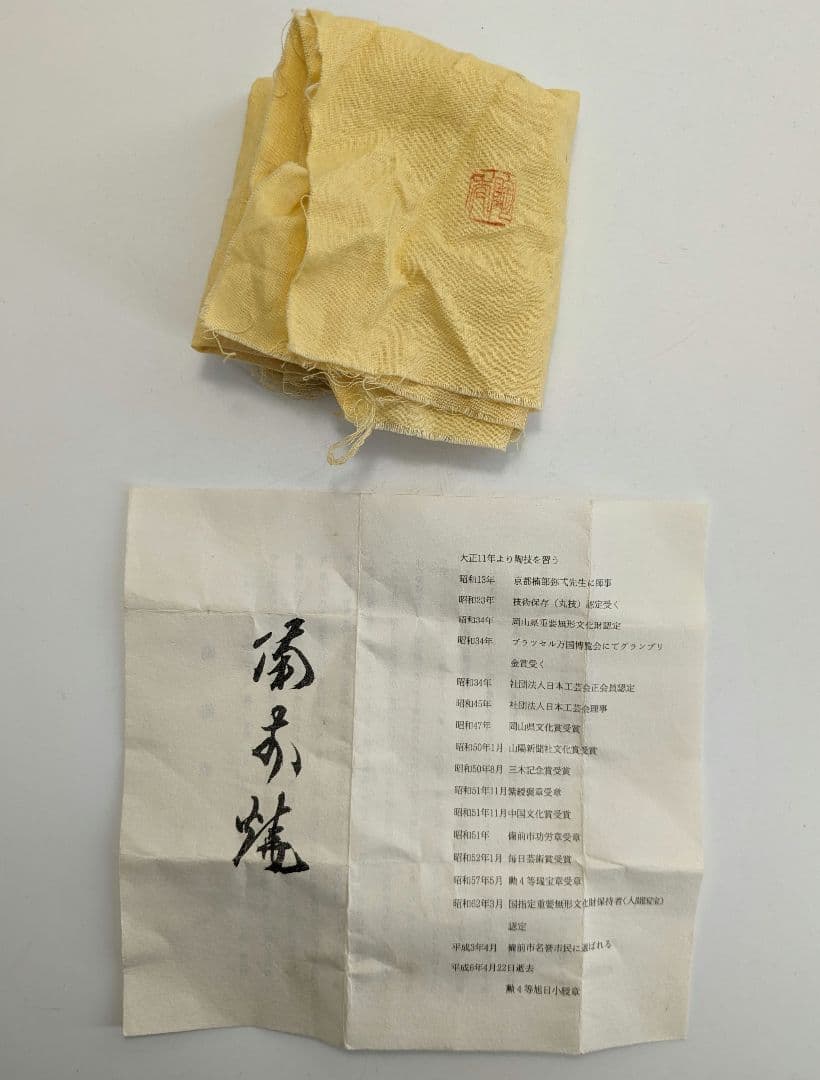 大正11年より陶技を習う
昭和13年 京都楠部弥弌先生に師事
昭和23年 技術保存(丸技)認定受く
昭和34年 岡山県重要無形文化財認定
昭和34年 ブラッセル万国博覧会にてグランプリ
金賞受く
昭和34年 社団法人日本工芸会正会員認定
昭和45年 社団法人日本工芸会理事
昭和47年 岡山県文化賞受賞
昭和50年1月 山陽新聞社文化賞受賞
昭和50年8月 三木記念賞受賞
昭和51年11月 紫綬褒章受章
昭和51年11月 中国文化賞受賞
昭和51年 備前市功労章受章
昭和52年1月 毎日芸術賞受賞
昭和57年5月 勲4等瑞宝章受章
昭和62年3月 国指定重要無形文化財保持者(人間国宝)
認定
平成3年4月 備前市名誉市民に選ばれる
平成6年4月22日逝去
勲4等旭日小綬章
備前焼